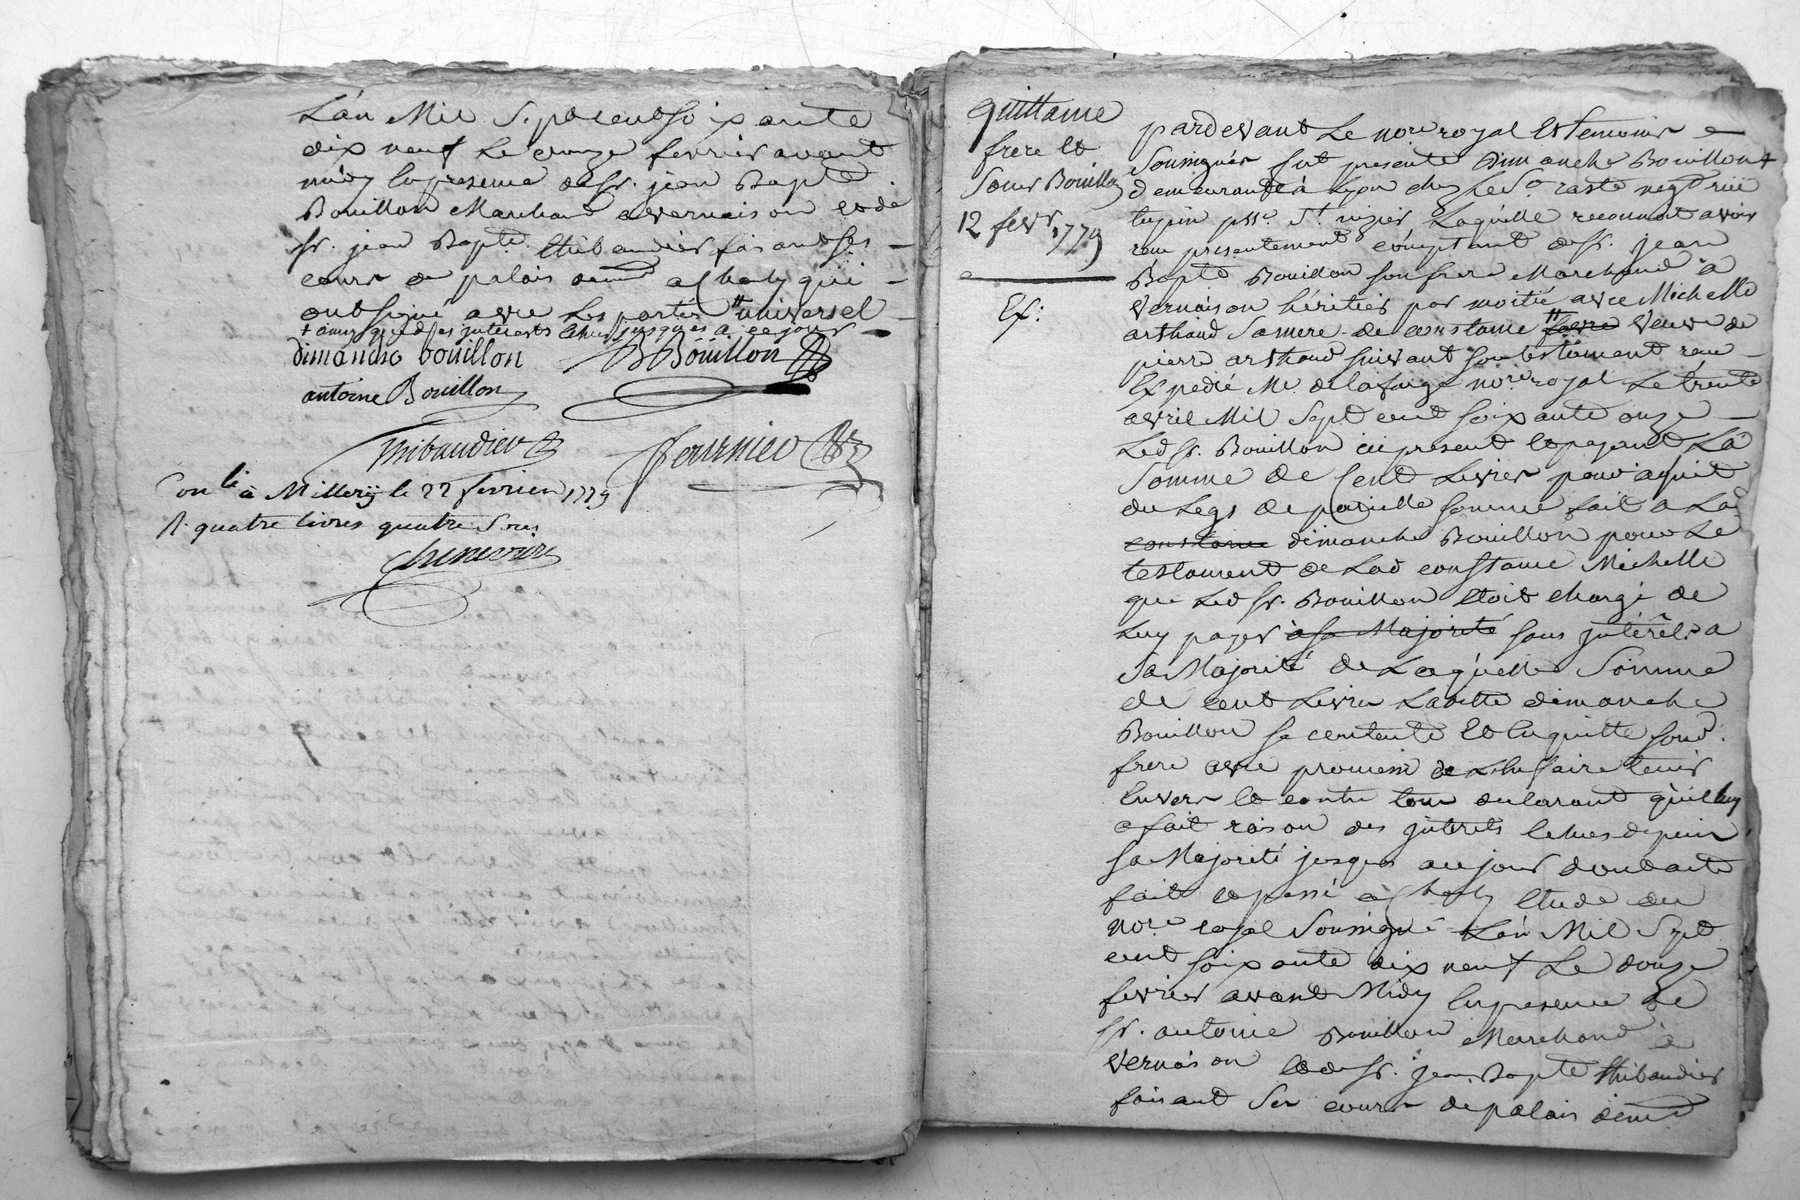 L'an Mil Sept cent soixante
dix neuf Le douze fevrier avant
midy En presence de Sr. jean Bapte
Bouillon Marchand a vernaison et de
Sr. jean Bapte. thibaudier faisant ses
cours de palais demt a Charly qui
ont signé avec Les parties universel
+ ainsy que des intérêts jusques a ce jour
dimanche bouillon JB Boüillon
antoine Bouillon
Thibaudier
Con.le à Millery le 22 fevrier 1779
R. quatre livres quatre Sous
quittance
frere Et
Soeur Bouillon
12 fevr 1779
Ex:
pardevant Le nore royal Et temoins
Soussignés fut presente Dimanche Bouillon +
demeurante à Lyon chez Le Sr. negt rüe
tupin psse. St. nizier Laquelle reconnoit avoir
recu presentement comptant de Sr. jean
Bapte Bouillon son frere Marchand a
Vernaison héritier par moitié avec Michelle
arthaud Sa mere de constance favre veuve de
pierre arthaud suivant son testament recu
Expedié Me. delafarge nore royal Le trente
avril Mil Sept cent soixante onze
Led Sr. Bouillon ici present Et payant La
Somme de Cent Livres pour aquit
du Legs de pareille somme fait a Lad
constance dimanche Bouillon pour Le
testament de Lad constance Michelle
que Led Sr. Bouillon Etoit chargé de
Luy payer à sa Majorité sans jnterêt a
Sa Majorité de Laquelle Somme
de cent Livres Ladette dimanche
Bouillon se contente Et En quitte sond.
frere avec promesse de L'En faire tenir
Envers Et contre tous declarant qu'il luy
a fait raison des jnterets Echus depuis
sa Majorité jusques au jour dont acte
fait Et passé a Charly Etude du
nore. royal Soussigné L'an Mil Sept
cent soixante dix neuf Le douze
fevrier avant Midy En presence de
Sr. antoine Bouillon Marchand à
Vernaison Et de Sr. jean Bapte thibaudier
faisant Ses cours de palais demt